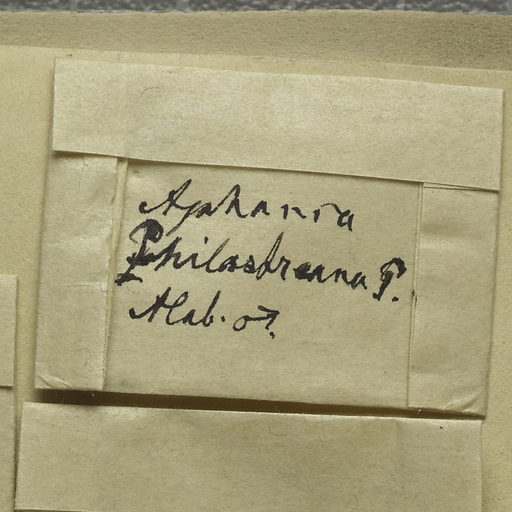 Aphania
Philostreana P.
Alab. ♂.